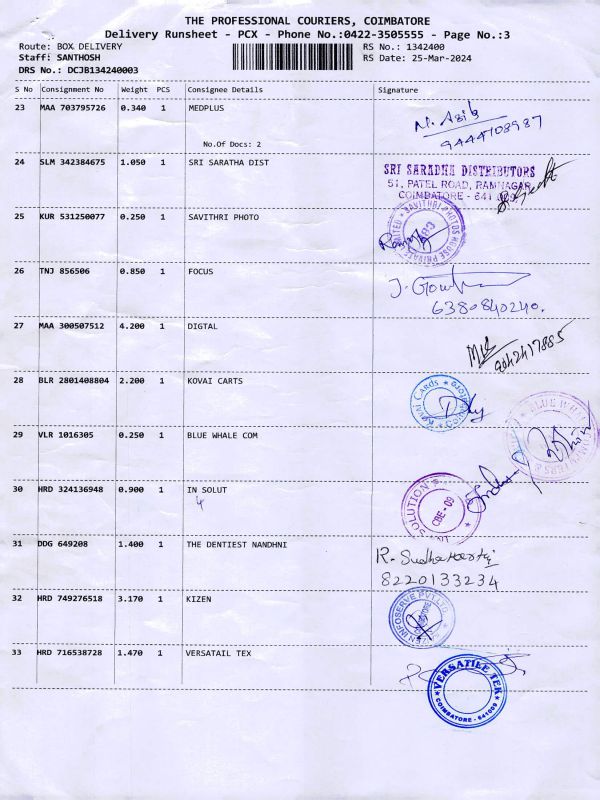 THE PROFESSIONAL COURIERS, COIMBATORE
Delivery Runsheet - PCX - Phone No.:0422-3505555 - Page No.:3
Route: BOX DELIVERY RS No.: 1342400
Staff: SANTHOSH RS Date: 25-Mar-2024
DRS No.: DCJB134240003
S No Consignment No Weight PCS Consignee Details Signature
23 MAA 703795726 0.340 1 MEDPLUS
No.Of Docs: 2
N. Asib
9444708987
24 SLM 342384675 1.050 1 SRI SARATHA DIST
SRI SARADHA DISTRIBUTORS
51, PATEL ROAD, RAMNAGAR,
COIMBATORE - 641 009
25 KUR 531250077 0.250 1 SAVITHRI PHOTO
SAVITHRI PHOTOS HOUSE PRIVATE LIMITED
26 TNJ 856506 0.850 1 FOCUS
6380840240.
27 MAA 300507512 4.200 1 DIGTAL
9042417885
28 BLR 2801408804 2.200 1 KOVAI CARTS
KOVAI CARDS
29 VLR 1016305 0.250 1 BLUE WHALE COM
BLUE WHALE
30 HRD 324136948 0.900 1 IN SOLUT
4
SOLUTION
CBE - 09
31 DDG 649208 1.400 1 THE DENTIEST NANDHNI
8220133234
32 HRD 749276518 3.170 1 KIZEN
INFOSERVE PVT LTD
33 HRD 716538728 1.470 1 VERSATAIL TEX
VERSATILE TEK
COIMBATORE - 641009